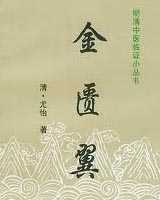 明清中医临证小丛书
金匮翼
清·尤怡 著